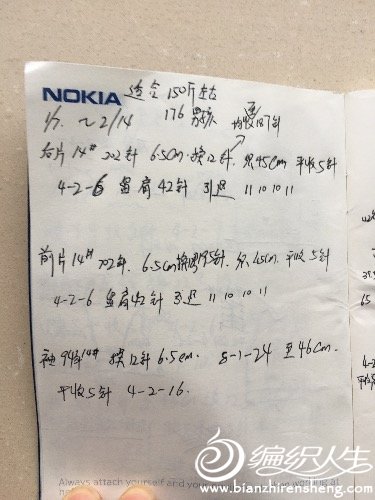 NOKIA 适合150斤左右
1/7. ~ 2/14 176 男孩 均收187针
后片14# 202针 6.5cm 换12针. 织45cm 平收5针
4-2-6 留肩42针 引退 11 10 10 11
前片14# 202针. 6.5cm换 195针. 织45cm. 平收5针
4-2-6 留肩42针 引退 11 10 10 11
袖94针14# 换12针 6.5cm. 8-1-24 至46cm.
平收5针 4-2-16.
Always attach yourself and your
编织人生
www.bianzhirensheng.com